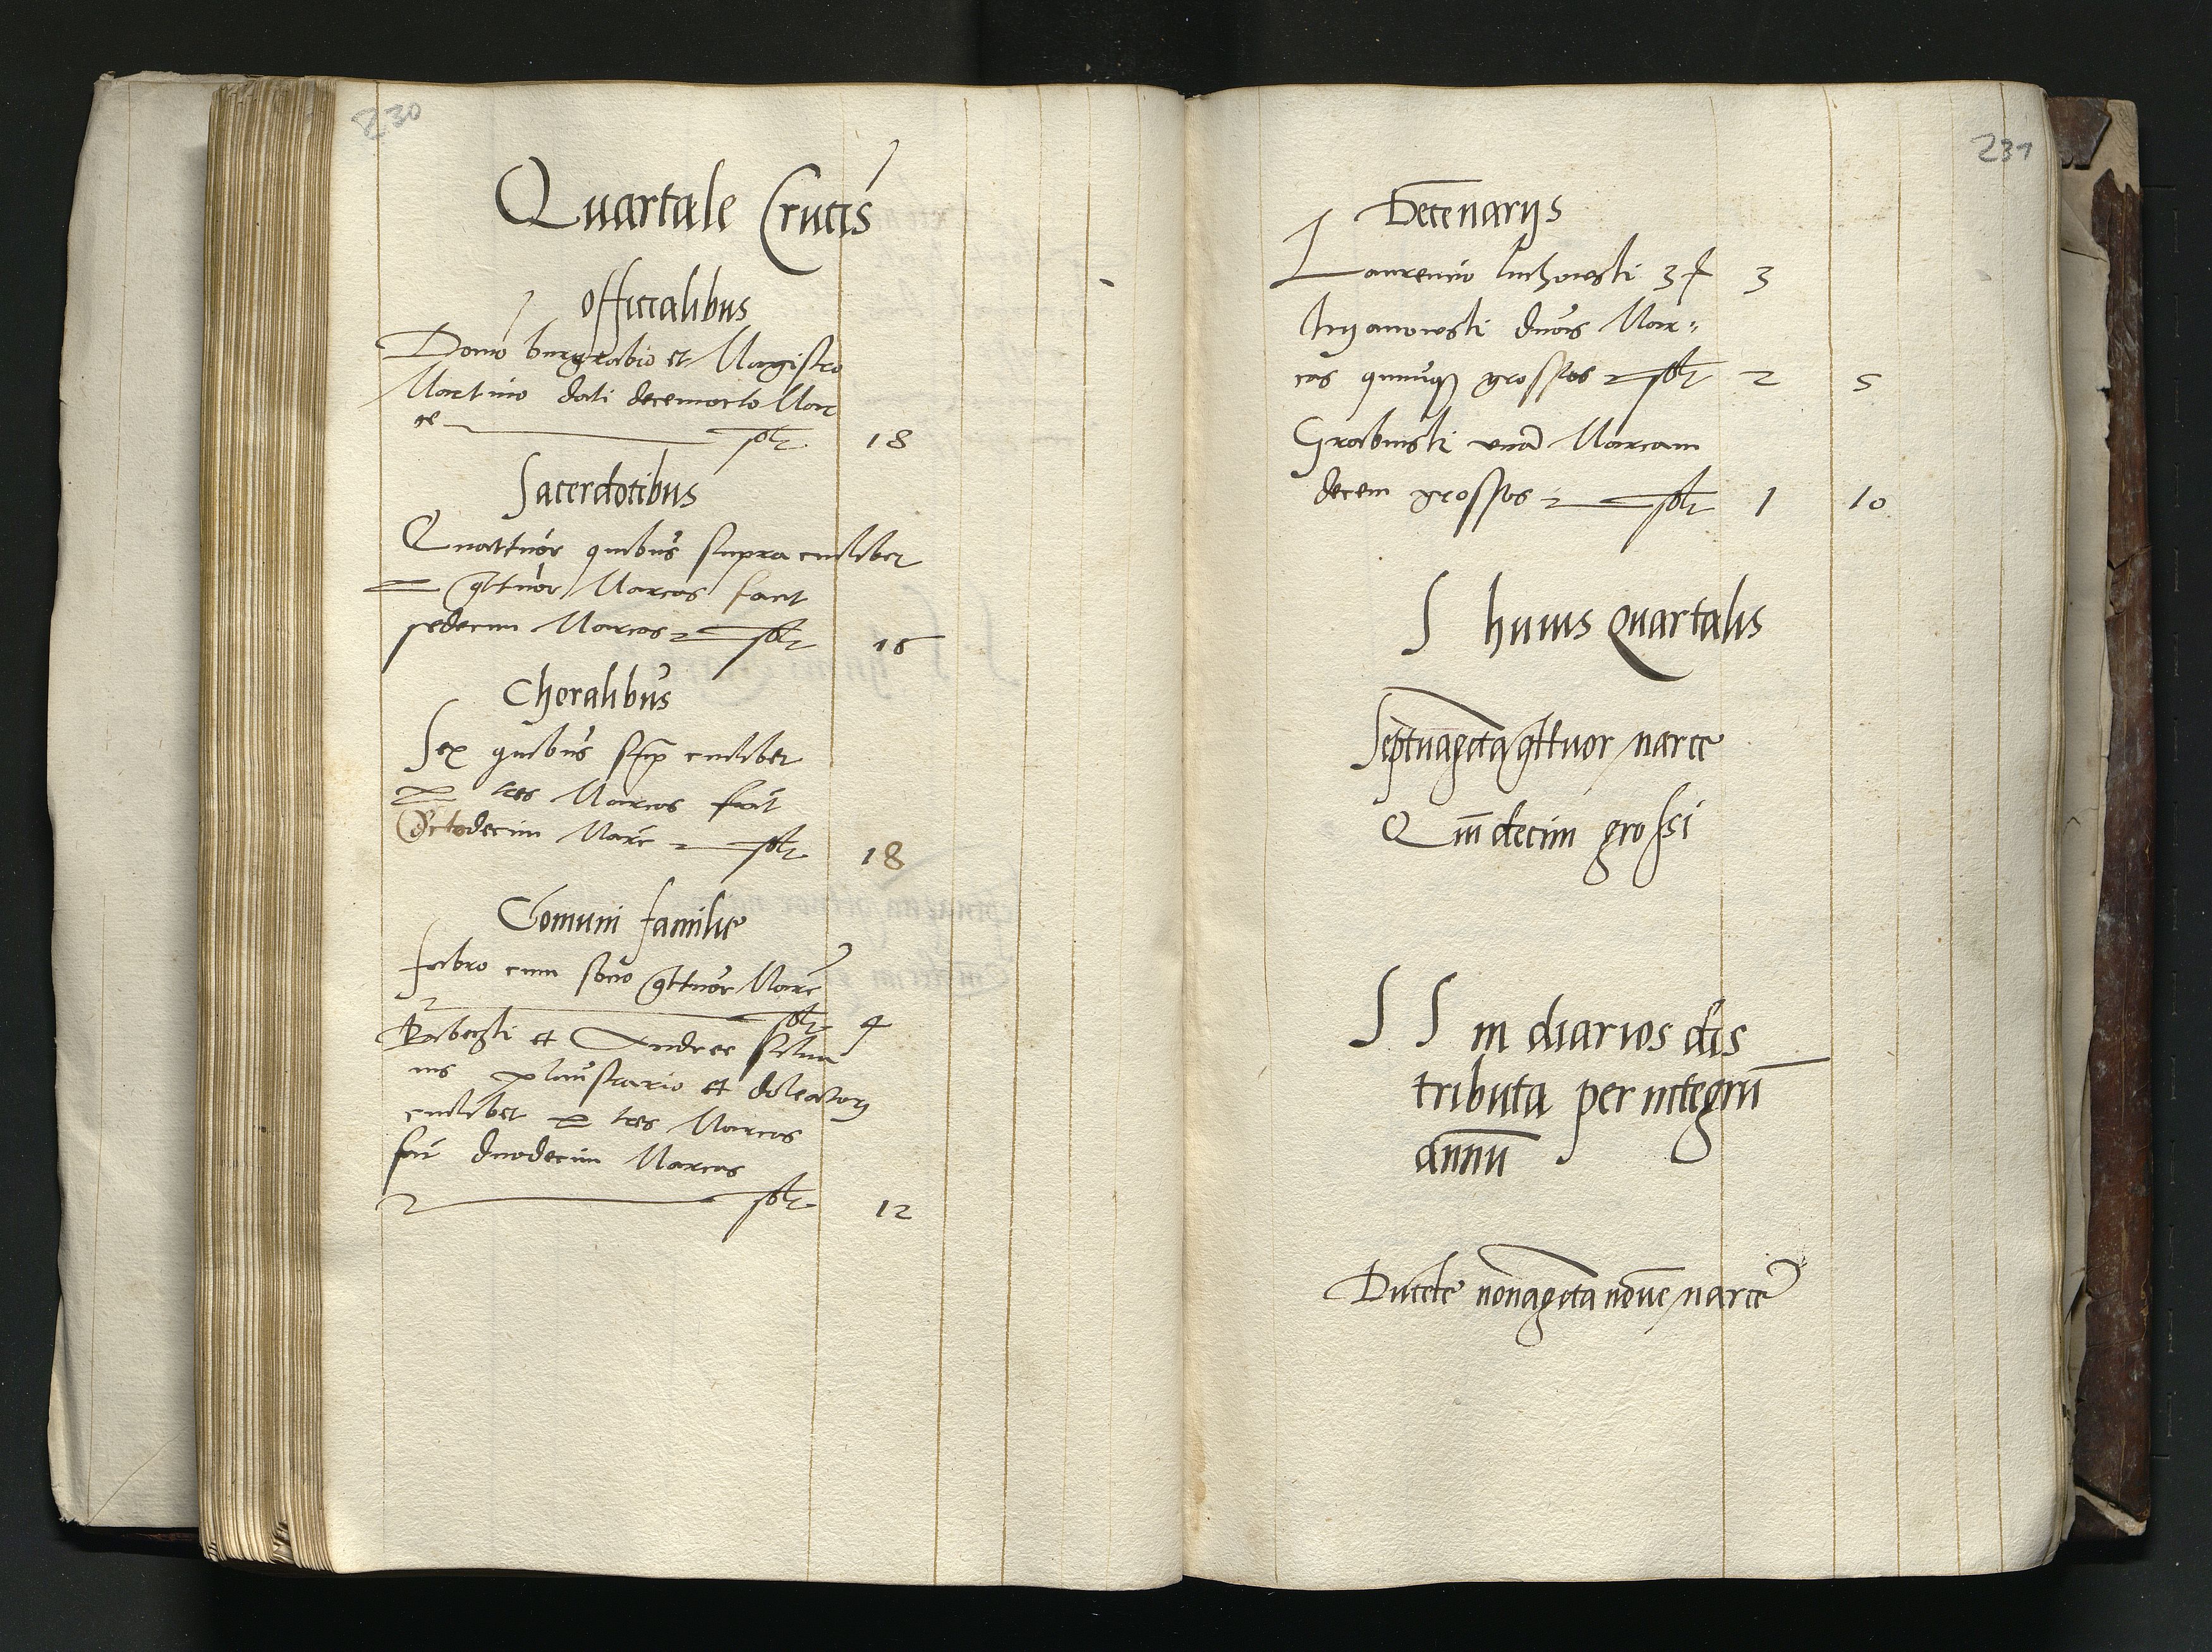 230
Quartale Crucis
Officialibus
Domino burgrabio et Magistro
Martino dati decemocto Mar
ce 18
Sacerdotibus
Quattuor quibus supra cuilibet
qttuor Marcas facit
sedecim Marcas 16
Choralibus
Sex quibus sup cuilibet
tres Marcas facit
Octodecim Marc 18
Comuni familie
fabro cum socio qttuor Marc
4
et Andree
plaustrario et doleatori
cuilibet tres Marcas
facit duodecim Marcas
12
231
Decenarijs
Laurencio 3 3
duas Mar
cas quinque grossos 2 5
Grabinski una Marcam
decem grossos 1 10
S huius Quartalis
Septuagita qttuor marce
Quidecim grossi
S S in diarios dis
tributa per integru
annu
Ducete nonagita nove marce